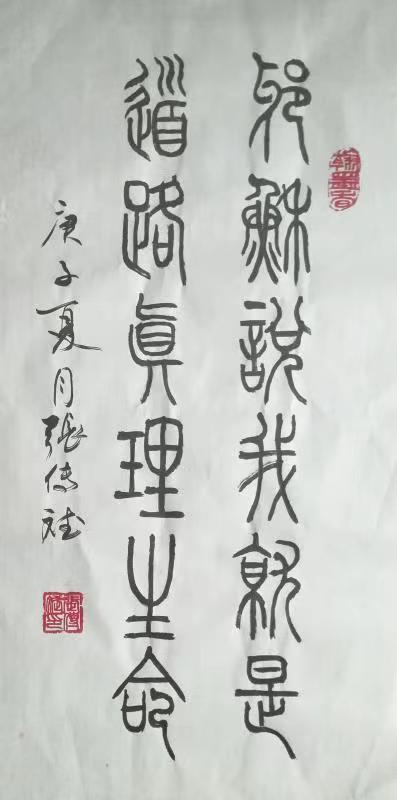 耶穌說我就是
道路真理生命
庚子夏月張傳斌